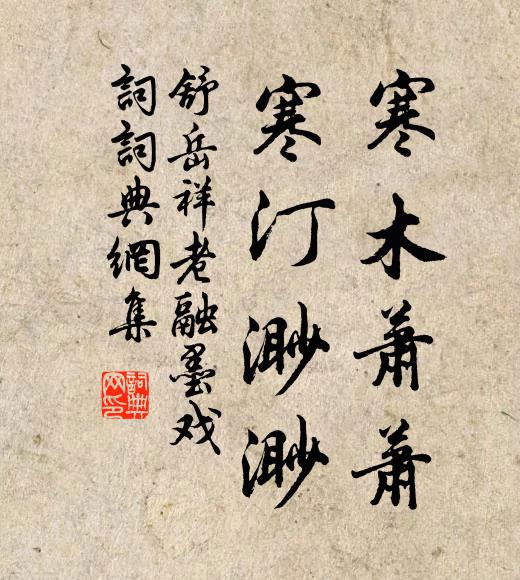 寒木蕭蕭
寒汀渺渺
舒岳祥老融墨戏
詞詞典網集
詞典
网印